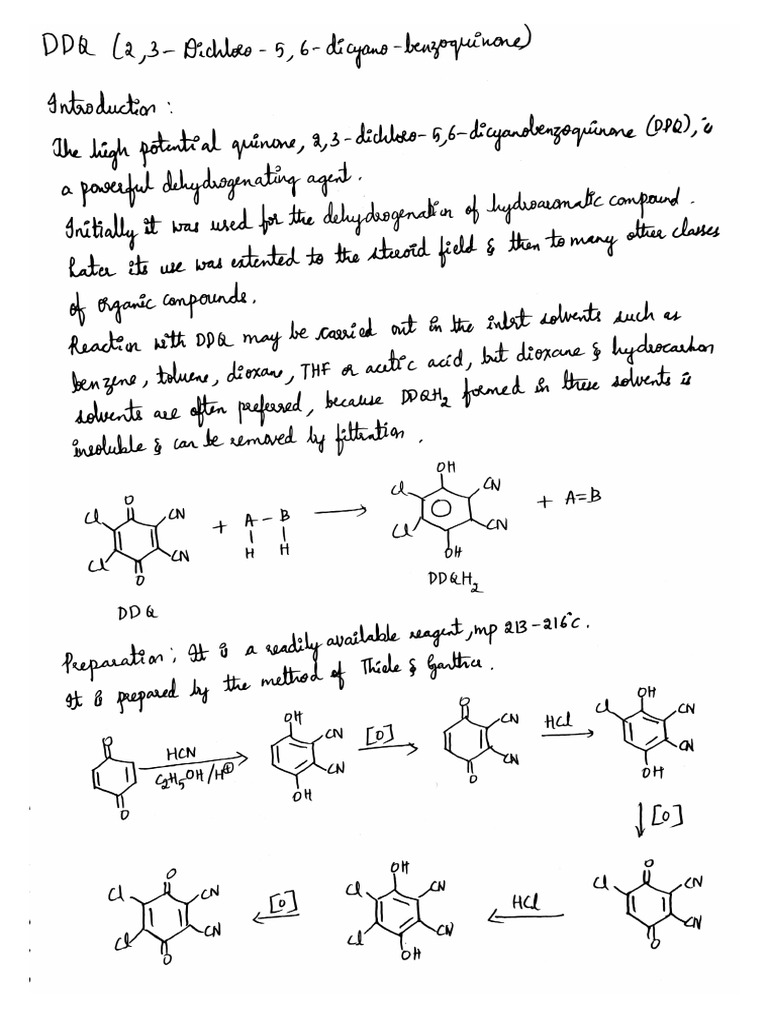 DDQ (2,3- Dichloro - 5,6-dicyano-benzoquinone)
Introduction:
The high potential quinone, 2,3-dichloro-5,6-dicyanobenzoquinone (DDQ), is
a powerful dehydrogenating agent.
Initially it was used for the dehydrogenation of hydroaromatic compound.
Later its use was extented to the steroid field & then to many other classes
of organic compounds.
Reaction with DDQ may be carried out in the inert solvents such as
benzene, toluene, dioxan, THF or acetic acid, but dioxane & hydrocarbon
solvents are often preferred, because DDQH2 formed in these solvents is
insoluble & can be removed by filtration.
O Cl CN Cl CN O + A-B H H → OH Cl CN Cl CN OH + A=B
DDQ DDQH2
Preparation; It is a readily available reagent, mp 213-216°c.
It is prepared by the method of Thiele &
O O HCN C2H5OH/H⊕ → OH CN CN OH [O] → O CN CN O HCl → OH Cl CN CN OH
↓ [O]
O Cl CN Cl CN O ← [O] OH Cl CN Cl CN OH ← HCl O Cl CN CN O